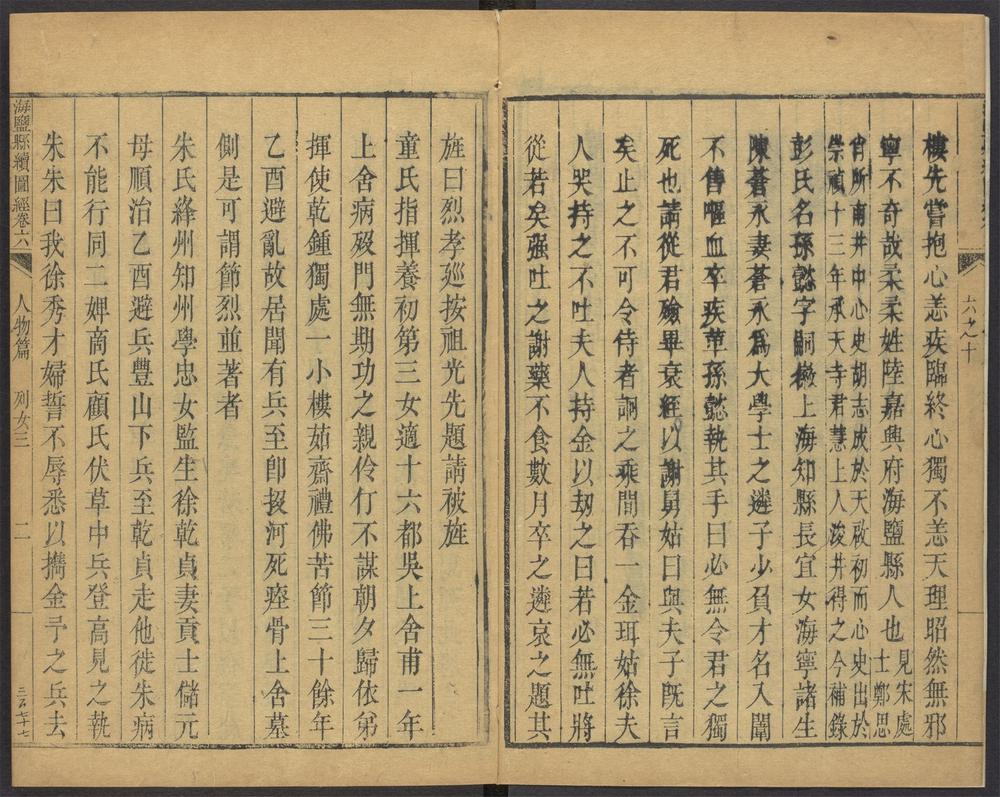 六之十
樓先嘗抱心恙疾臨終心獨不恙天理昭然無邪
寧不奇哉柔柔姓陸嘉興府海鹽縣人也見宋處士鄭思
肖所南井中心史胡志成於天啟初而心史出於
崇禎十三年承天寺君慧上人浚井得之今補錄
彭氏名孫懿字嗣徽上海知縣長宜女海寧諸生
陳蒼永妻蒼永爲大學士之遴子少負才名入闈
不售嘔血卒疾革孫懿執其手曰必無令君之獨
死也請從君殮畢衰絰以謝舅姑曰與夫子旣言
矣止之不可令侍者詗之乘間吞一金珥姑徐夫
人哭持之不吐夫人持金以刼之曰若必無吐將
從若矣强吐之謝藥不食數月卒之遴哀之題其
旌曰烈孝廵按祖光先題請被旌
童氏指揮養初第三女適十六都吳上舍甫一年
上舍病歿門無期功之親伶仃不謀朝夕歸依第
揮使乾鍾獨處一小樓茹齋禮佛苦節三十餘年
乙酉避亂故居聞有兵至卽投河死瘞骨上舍墓
側是可謂節烈並著者
朱氏絳州知州學忠女監生徐乾貞妻貢士儲元
母順治乙酉避兵豐山下兵至乾貞走他徙朱病
不能行同二婢商氏顧氏伏草中兵登高見之執
朱朱曰我徐秀才婦誓不辱悉以擕金予之兵去
海鹽縣續圖經卷六
人物篇
列女三
二
三百七十七